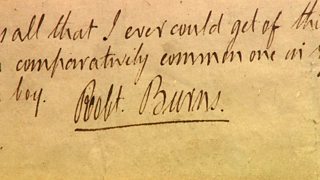 all that I ever could get of this
comparatively common one in
boy.
Robt. Burns.